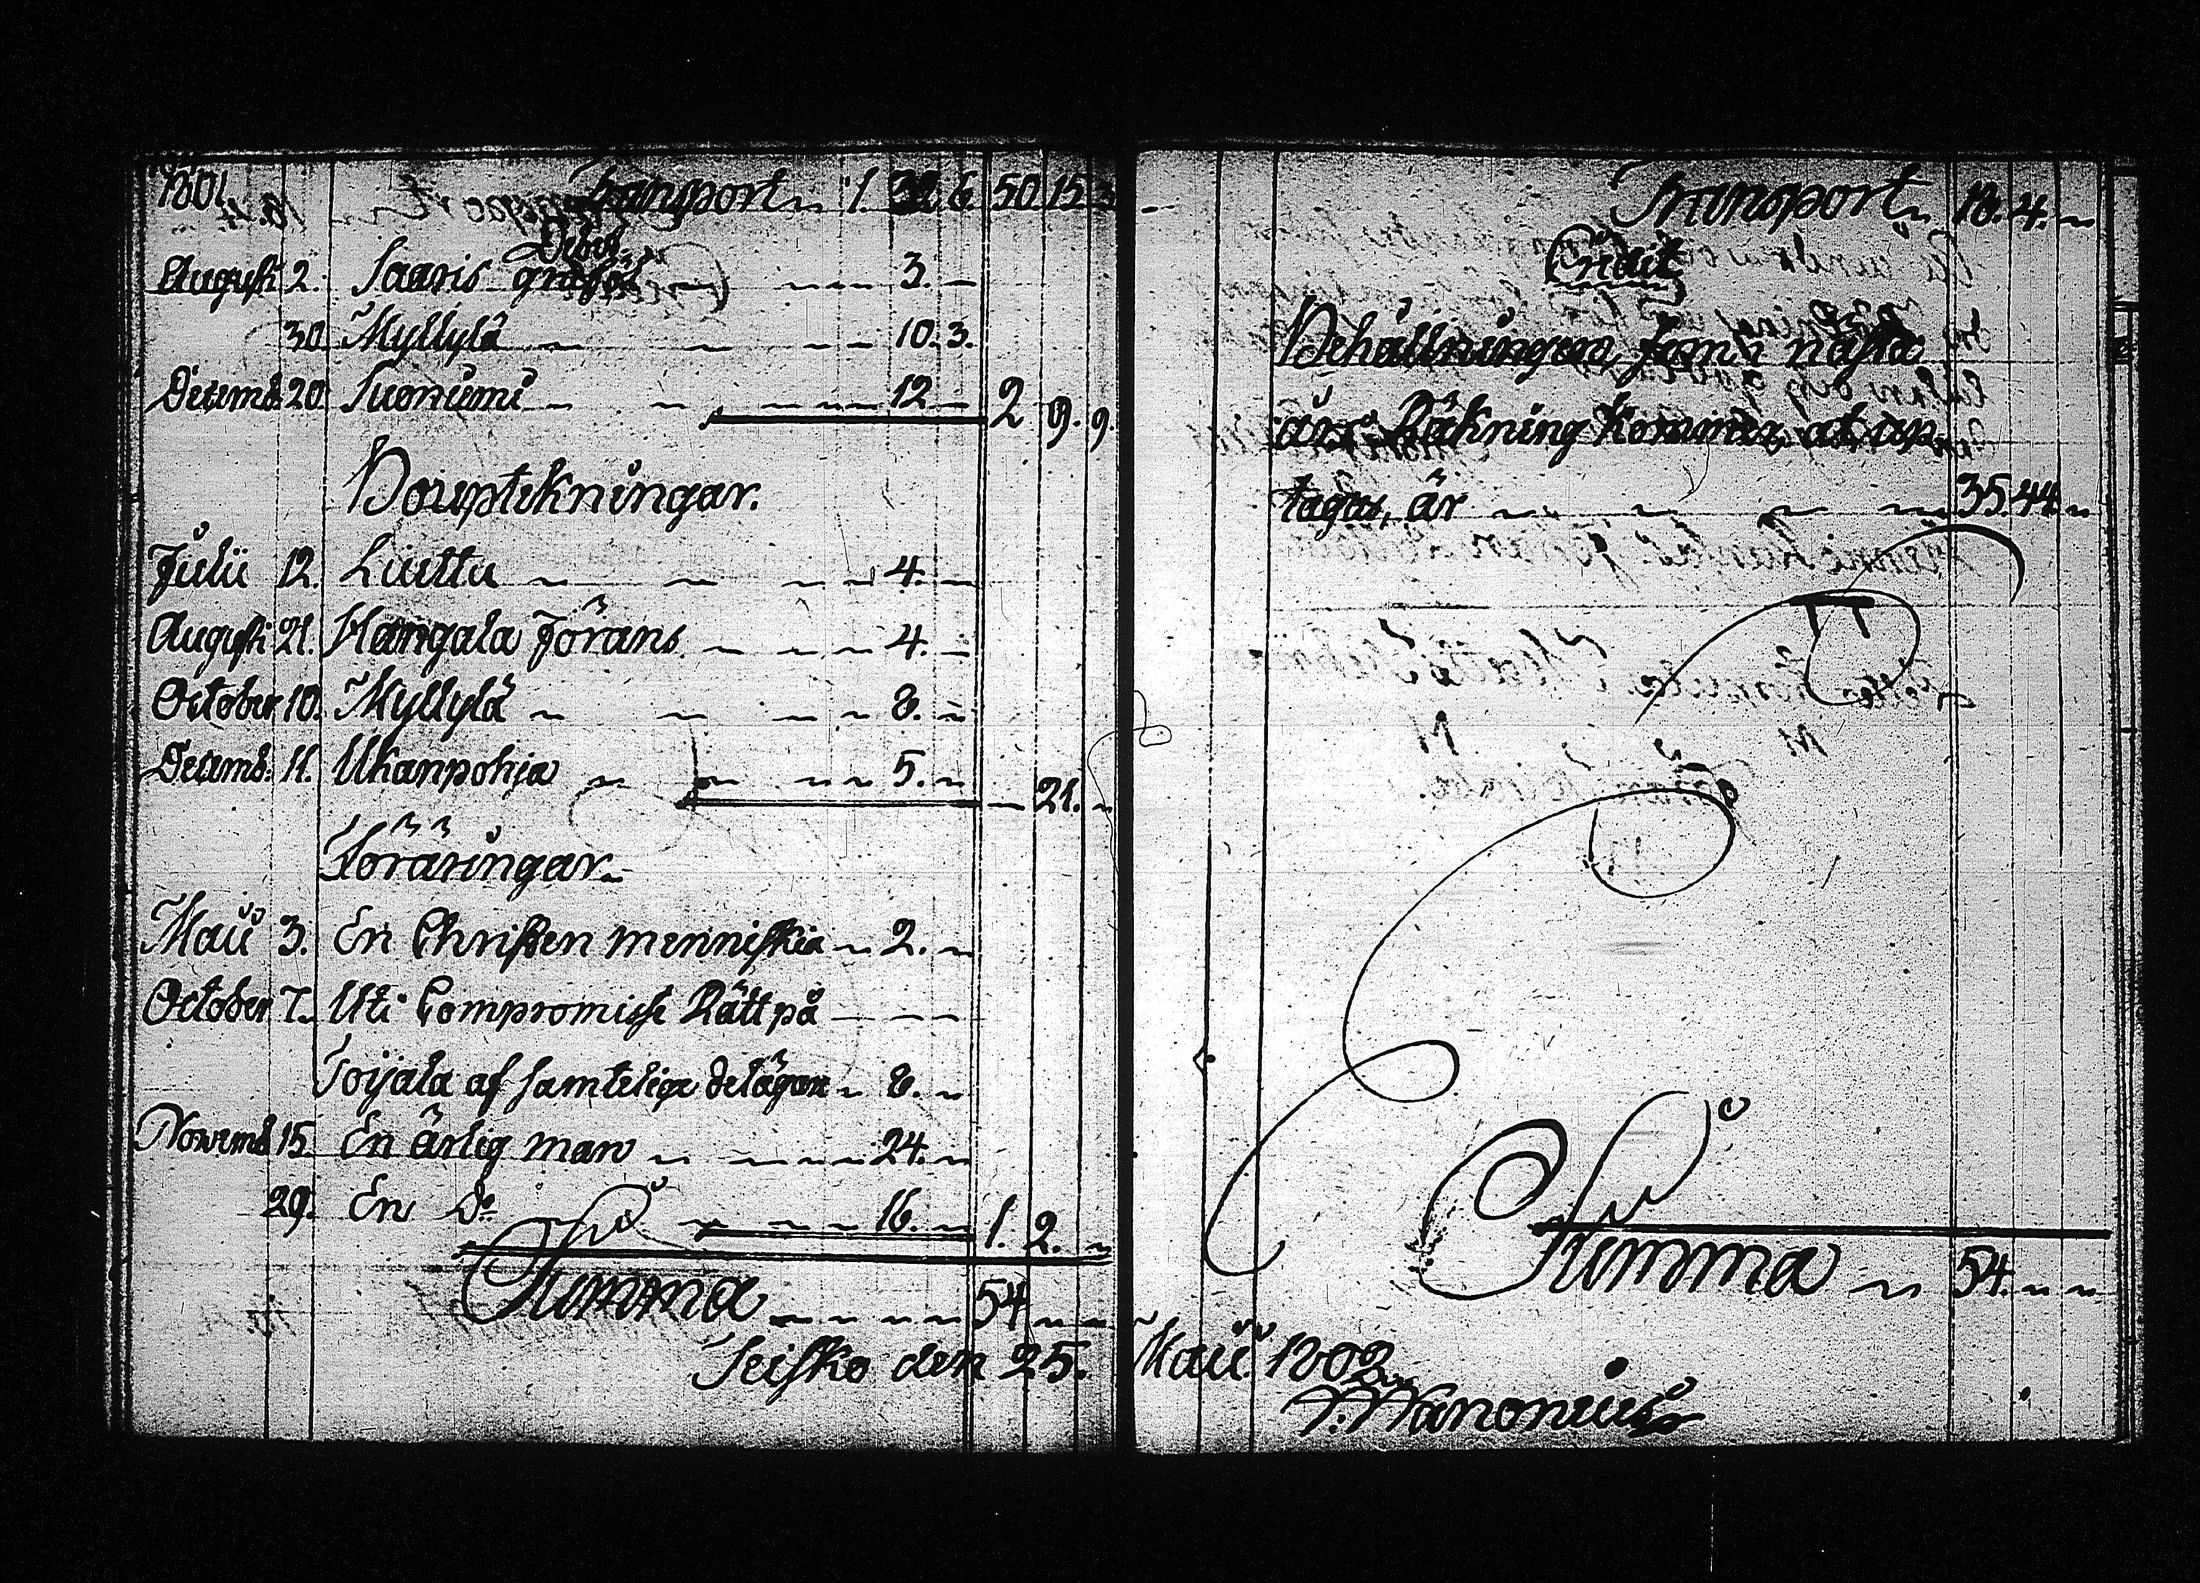 1801. Transport 1. 32. 6 50 15. 3
Debet
Augusti 2. Saaris gråföl 3.
30. Myllylä 10. 3.
Decemb. 20. Suoniemi 12 2 9. 9.
Böneptekningar.
Julii 12. Liuttu 4.
Augusti 21. Hangala Jörans 4.
October 10. Myllylä 8.
Decemb: 11. Ukanpohja 5. 21.
Föräringar
Maii 3. En Christen menniskia 2.
October 7. Uti Compromiss Rätt på
Toijala af samtelige delägare 8.
Novemb 15. En ärlig man 24.
29. En Do 16. 1. 2.
Summa 54
Teisko den 25. Maii 1802.
Transport 18. 4.
Credit
Behållningen, som i nästa
års Räkning kommer at up-
tagas, är 35. 44.
Summa 54.
Wanonius